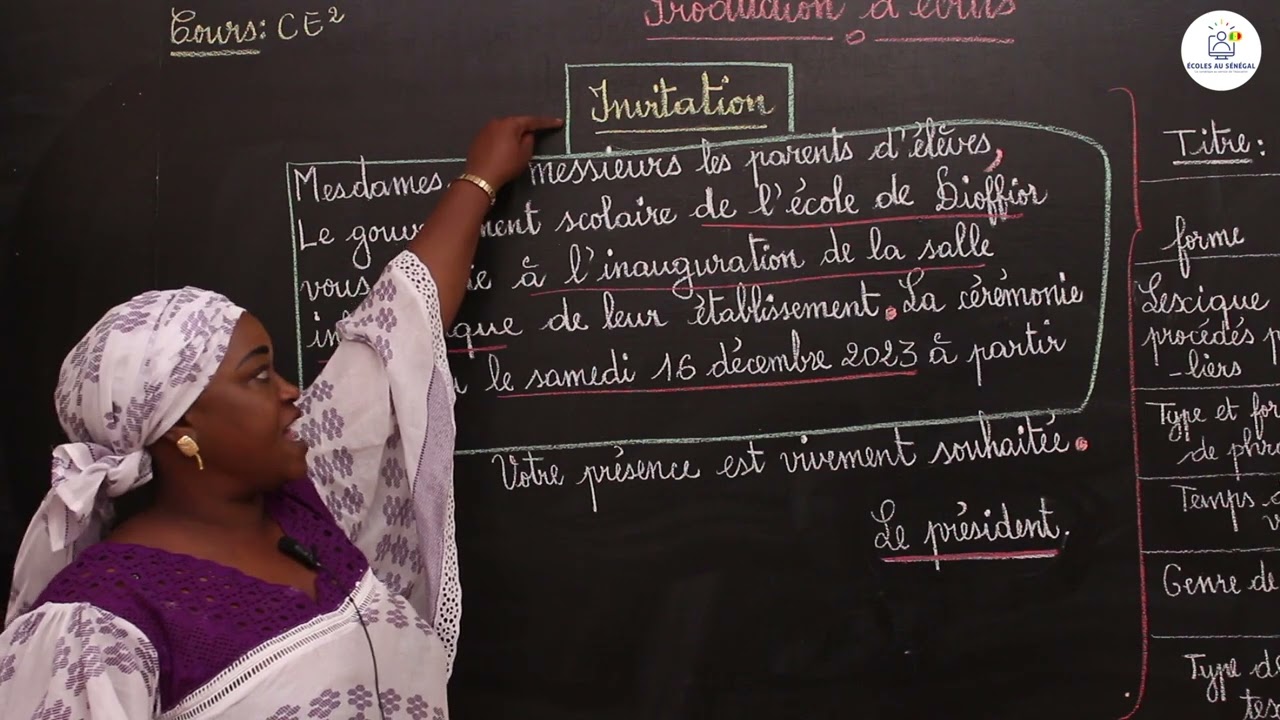 Cours: CE2
Production d'écrits
ÉCOLES AU SÉNÉGAL
Invitation
Mesdames, messieurs les parents d'élèves,
Le scolaire de l'école de Dioffior
vous à l'inauguration de la salle
de leur établissement. La cérémonie
le samedi 16 décembre 2023 à partir
Votre présence est vivement souhaitée.
Le président.
Titre:
forme
Lexique
procédés
-liers
Type et
de
Temps
Genre de
Type de